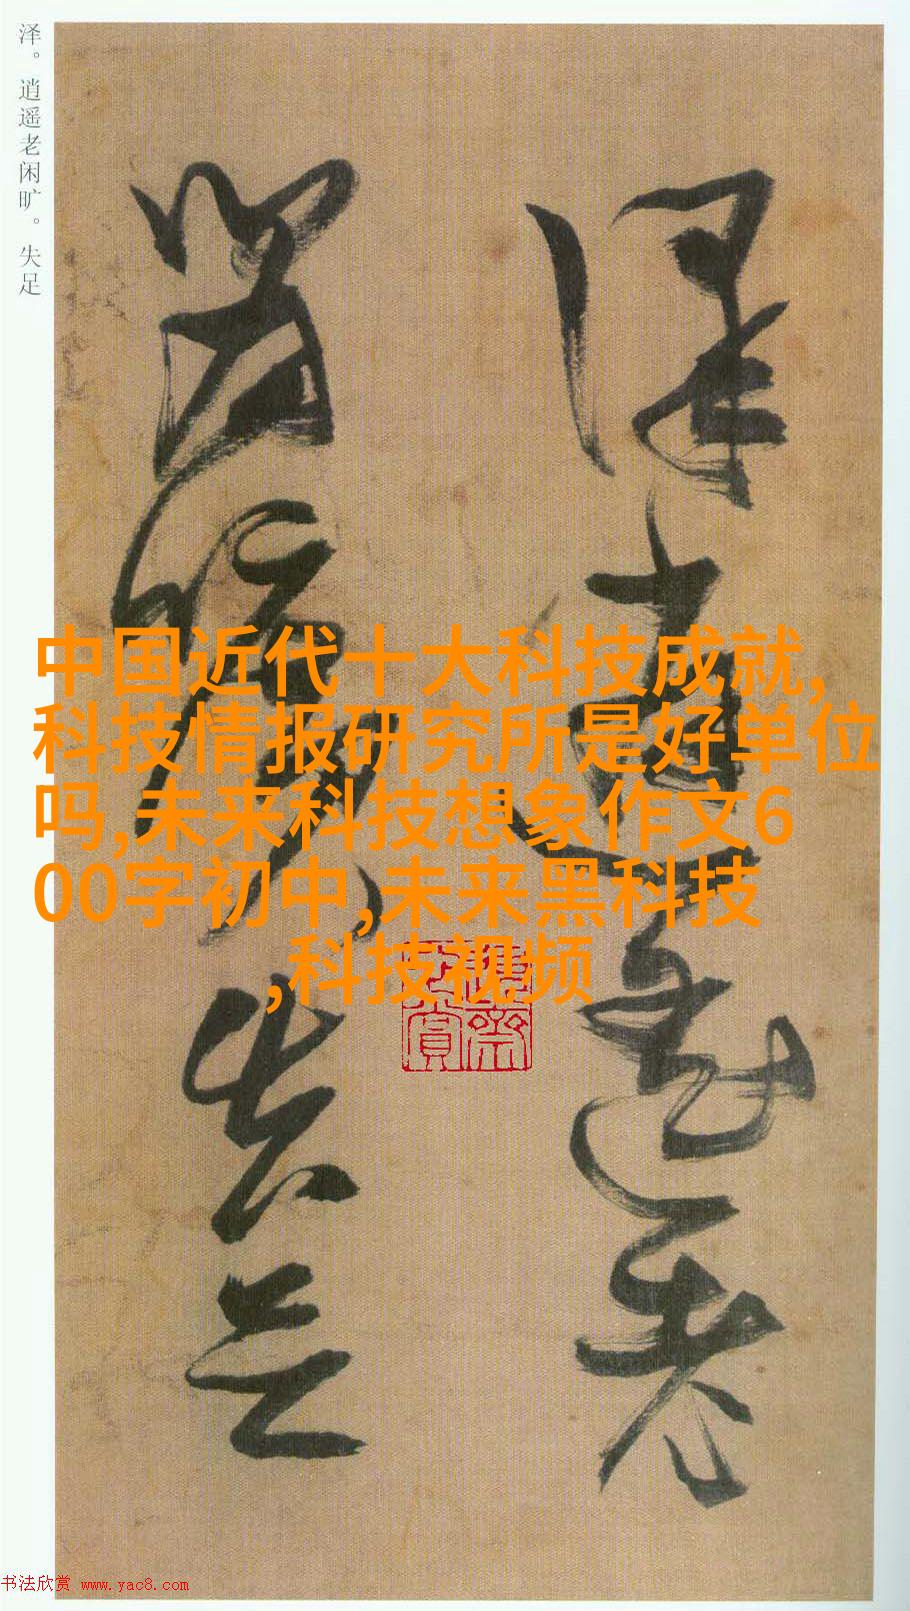 泽。逍遥老闲旷。失足
泽逍遥老
闲旷失足
中国近代十大科技成就,
科技情报研究所是好单位
吗,未来科技想象作文6
00字初中,未来黑科技
,科技视频
书法欣赏 www.yac8.com